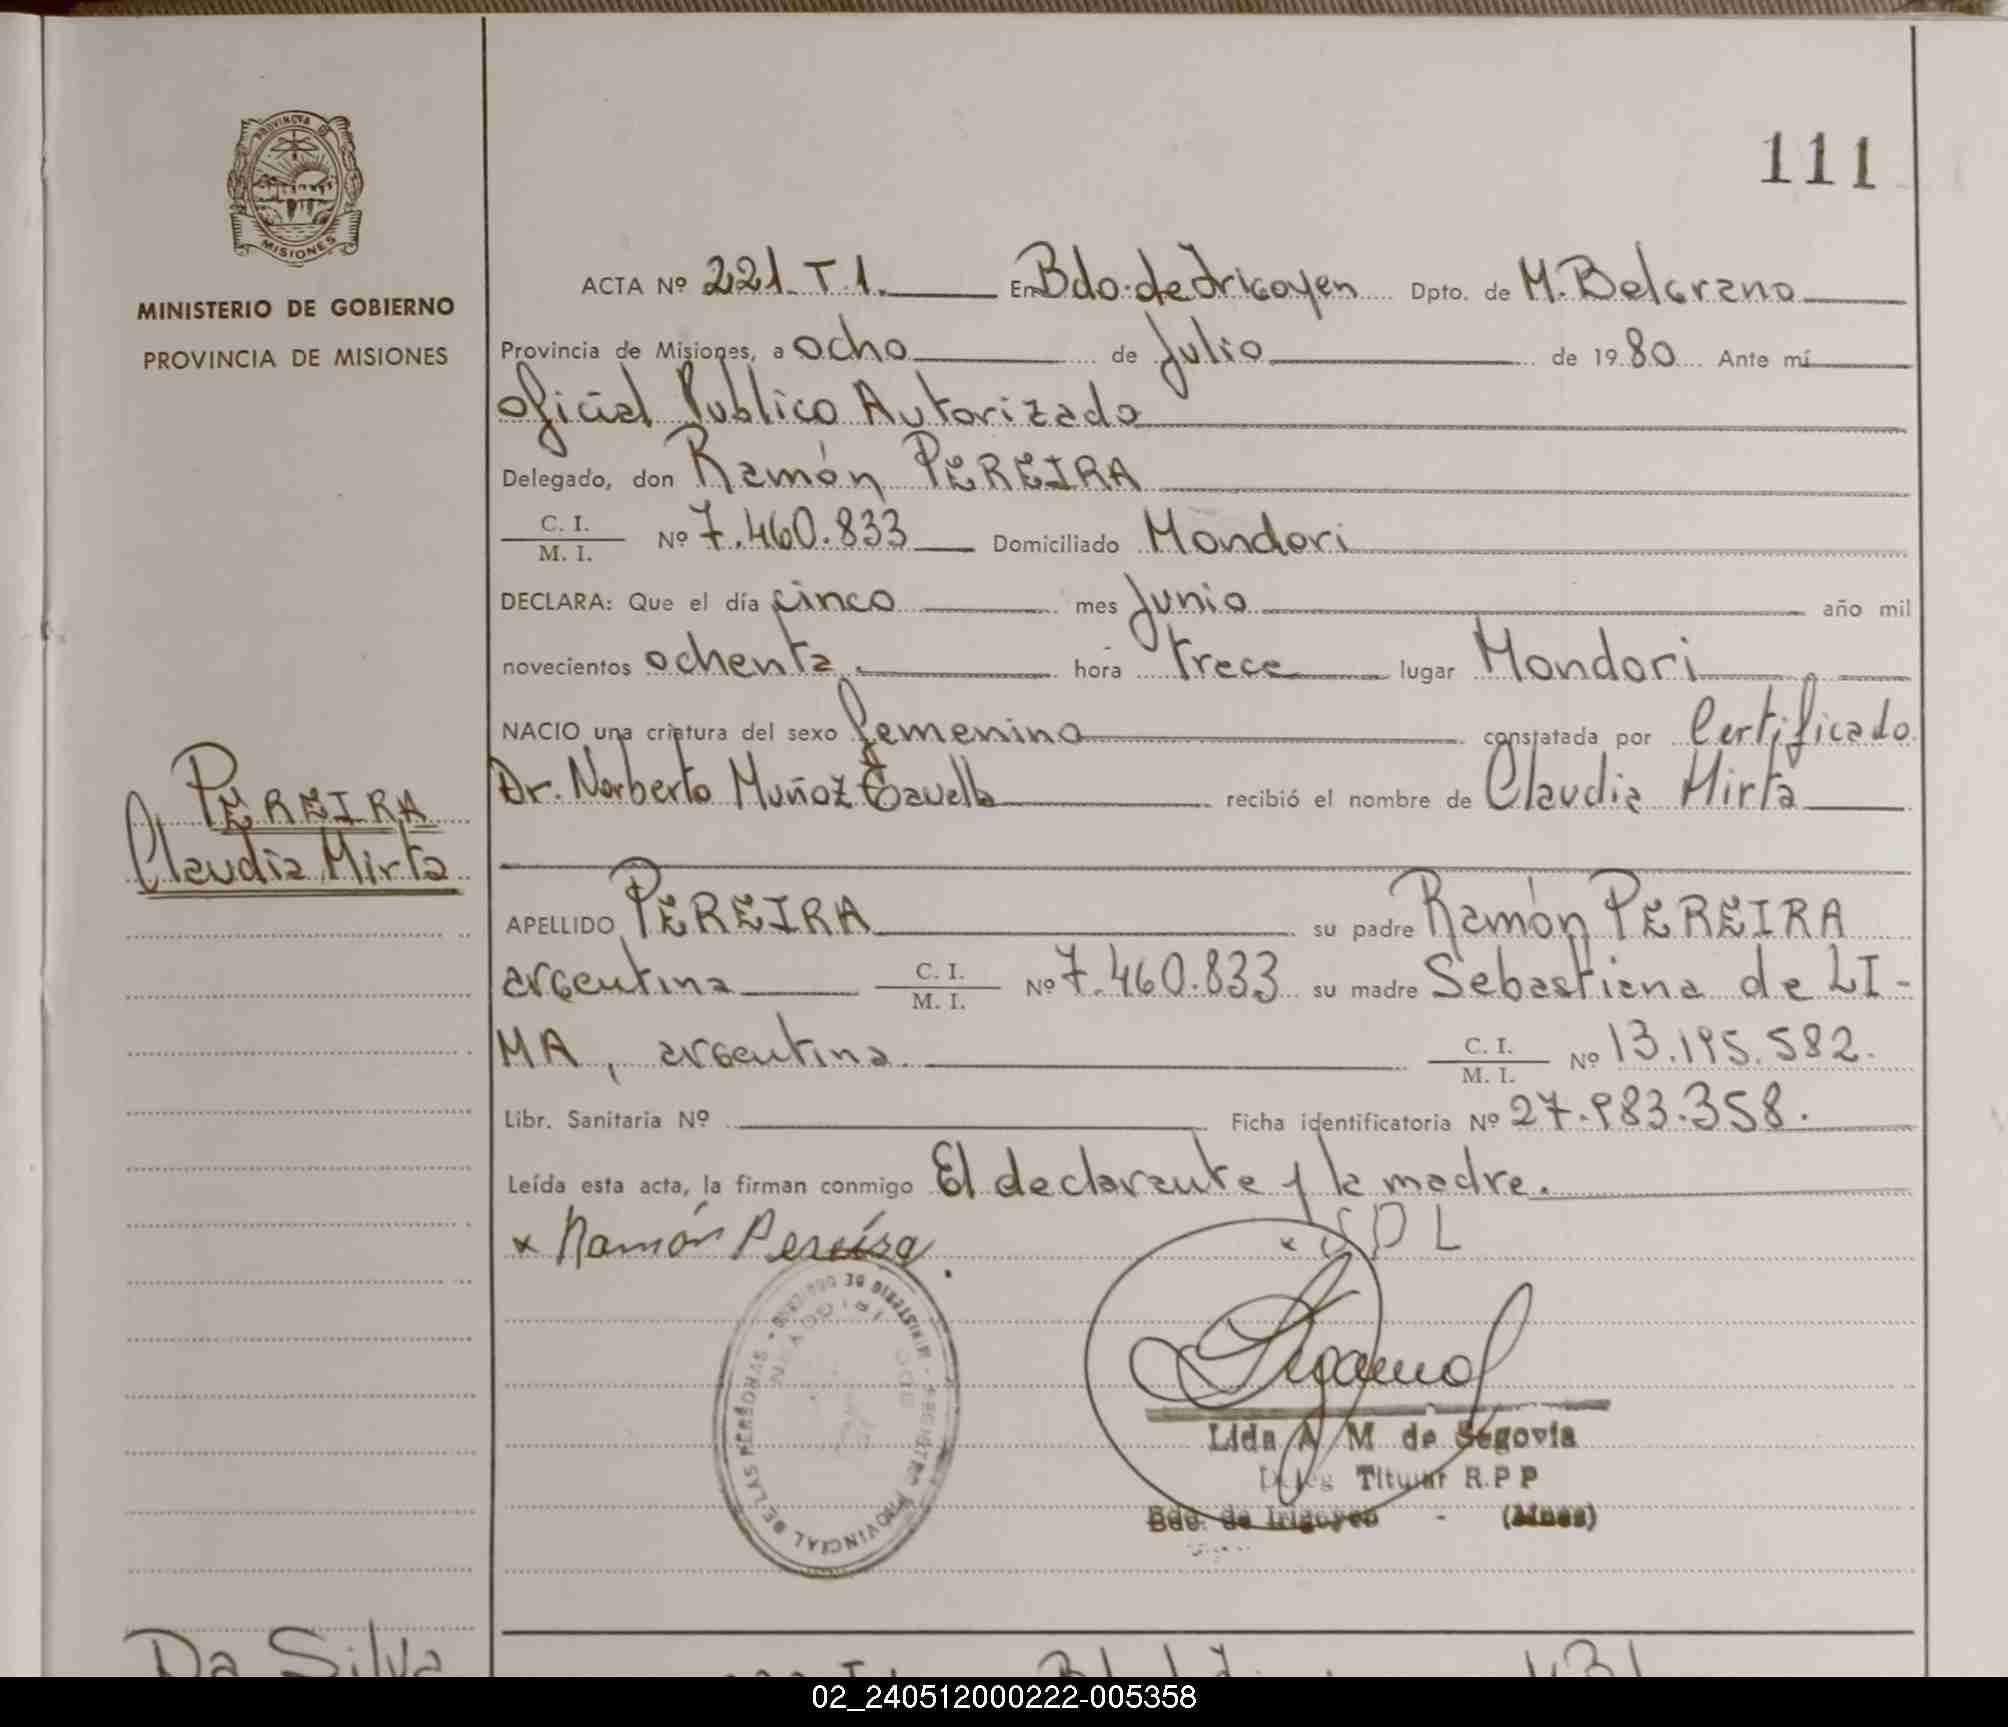 111
PROVINCIA DE
MISIONES
MINISTERIO DE GOBIERNO
PROVINCIA DE MISIONES
ACTA Nº 221 T 1. En Bdo. de Irigoyen Dpto. de M. Belgrano
Provincia de Misiones, a ocho de Julio de 1980 Ante mí
Oficial Publico Autorizado
Delegado, don Ramón PEREIRA
C. I.
M. I. Nº 7.460.833 Domiciliado Mondori
DECLARA: Que el día cinco mes Junio año mil
novecientos ochenta hora trece lugar Mondori
NACIO una criatura del sexo femenino constatada por Certificado
Dr. Norberto Muñoz Gavella recibió el nombre de Claudia Mirta
PEREIRA
Claudia Mirta
APELLIDO PEREIRA su padre Ramón PEREIRA
argentina C. I. / M. I. Nº 7.460.833 su madre Sebastiana de LI-
MA, argentina C. I. / M. I. Nº 13.195.582.
Libr. Sanitaria Nº Ficha identificatoria Nº 27.983.358.
Leída esta acta, la firman conmigo El declarante y la madre.
x Ramón Pereira. x S D L
MINISTERIO DE GOBIERNO - REGISTRO PROVINCIAL DE LAS PERSONAS -
BDO. IRIGOYEN
Lida A M de Segovia
Titular R.P P
Bdo. de Irigoyen - (Mnes)
Da Silva
02_240512000222-005358